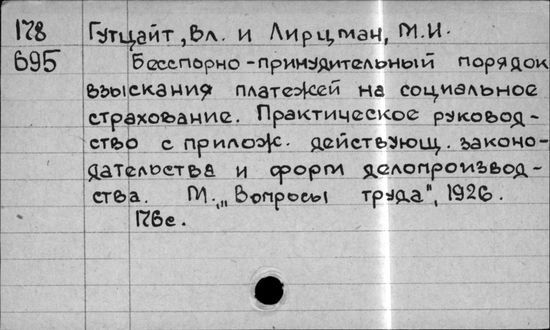 178 Гутцайт, Вл. и Лирцман, М.И.
695 Бесспорно-принудительный порядок
взыскания платежей на социальное
страхование. Практическое руковод-
ство с прилож. действующ. законо-
дательства и форм делопроизвод-
ства. М., „Вопросы труда", 1926.
176с.